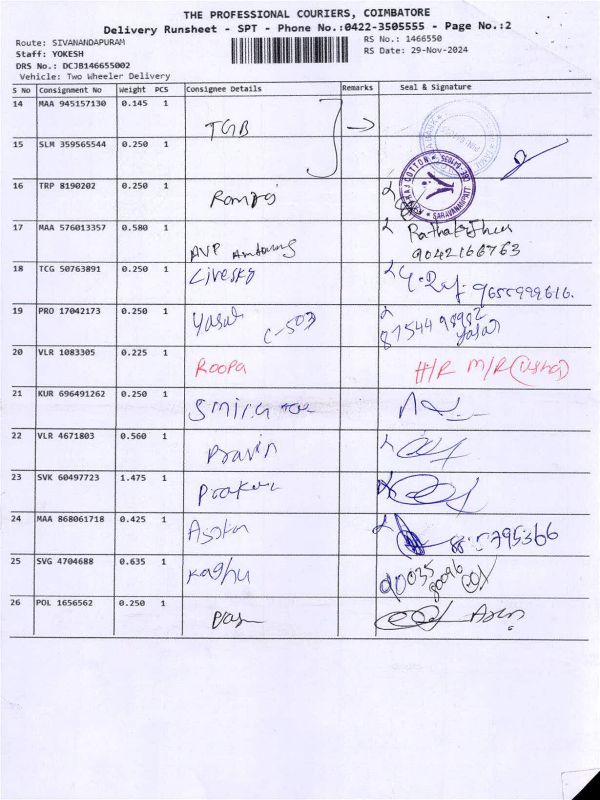 THE PROFESSIONAL COURIERS, COIMBATORE
Delivery Runsheet - SPT - Phone No.:0422-3505555 - Page No.:2
Route: SIVANANDAPURAM
RS No.: 1466550
Staff: YOKESH
RS Date: 29-Nov-2024
DRS No.: DCJB146655002
Vehicle: Two Wheeler Delivery
S No Consignment No Weight PCS Consignee Details Remarks Seal & Signature
14 MAA 945157130 0.145 1
TGB
15 SLM 359565544 0.250 1
16 TRP 8190202 0.250 1
17 MAA 576013357 0.580 1 AVP
9042166763
18 TCG 50763891 0.250 1 Livesky
9655999616.
19 PRO 17042173 0.250 1 Yasar C-503
Yasar
20 VLR 1083305 0.225 1 Roopa H/R M/R (Usha)
21 KUR 696491262 0.250 1
22 VLR 4671803 0.560 1 Pravin
23 SVK 60497723 1.475 1
24 MAA 868061718 0.425 1
25 SVG 4704688 0.635 1 Raghu
90035
80096
26 POL 1656562 0.250 1